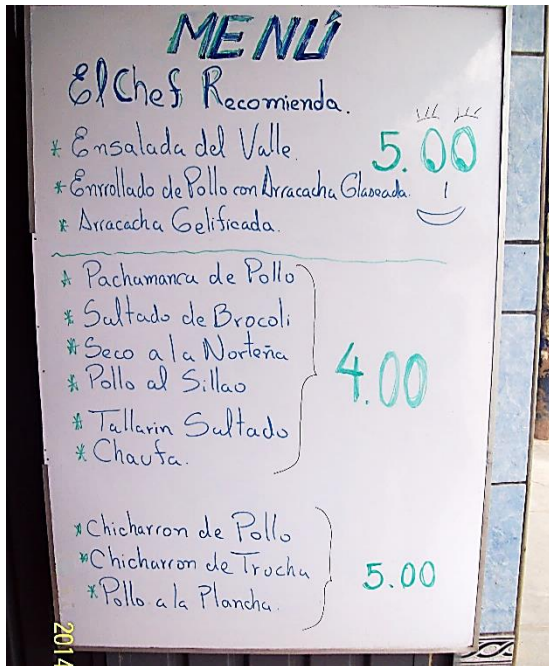 MENÚ
El Chef Recomienda.
* Ensalada del Valle.
5.00
* Enrrollado de Pollo con Arracacha Glaseada.
* Arracacha Gelificada.
* Pachamanca de Pollo
* Saltado de Brocoli
* Seco a la Norteña
* Pollo al Sillao
4.00
* Tallarin Saltado
* Chaufa.
* Chicharron de Pollo
* Chicharron de Trucha
5.00
* Pollo a la Plancha.